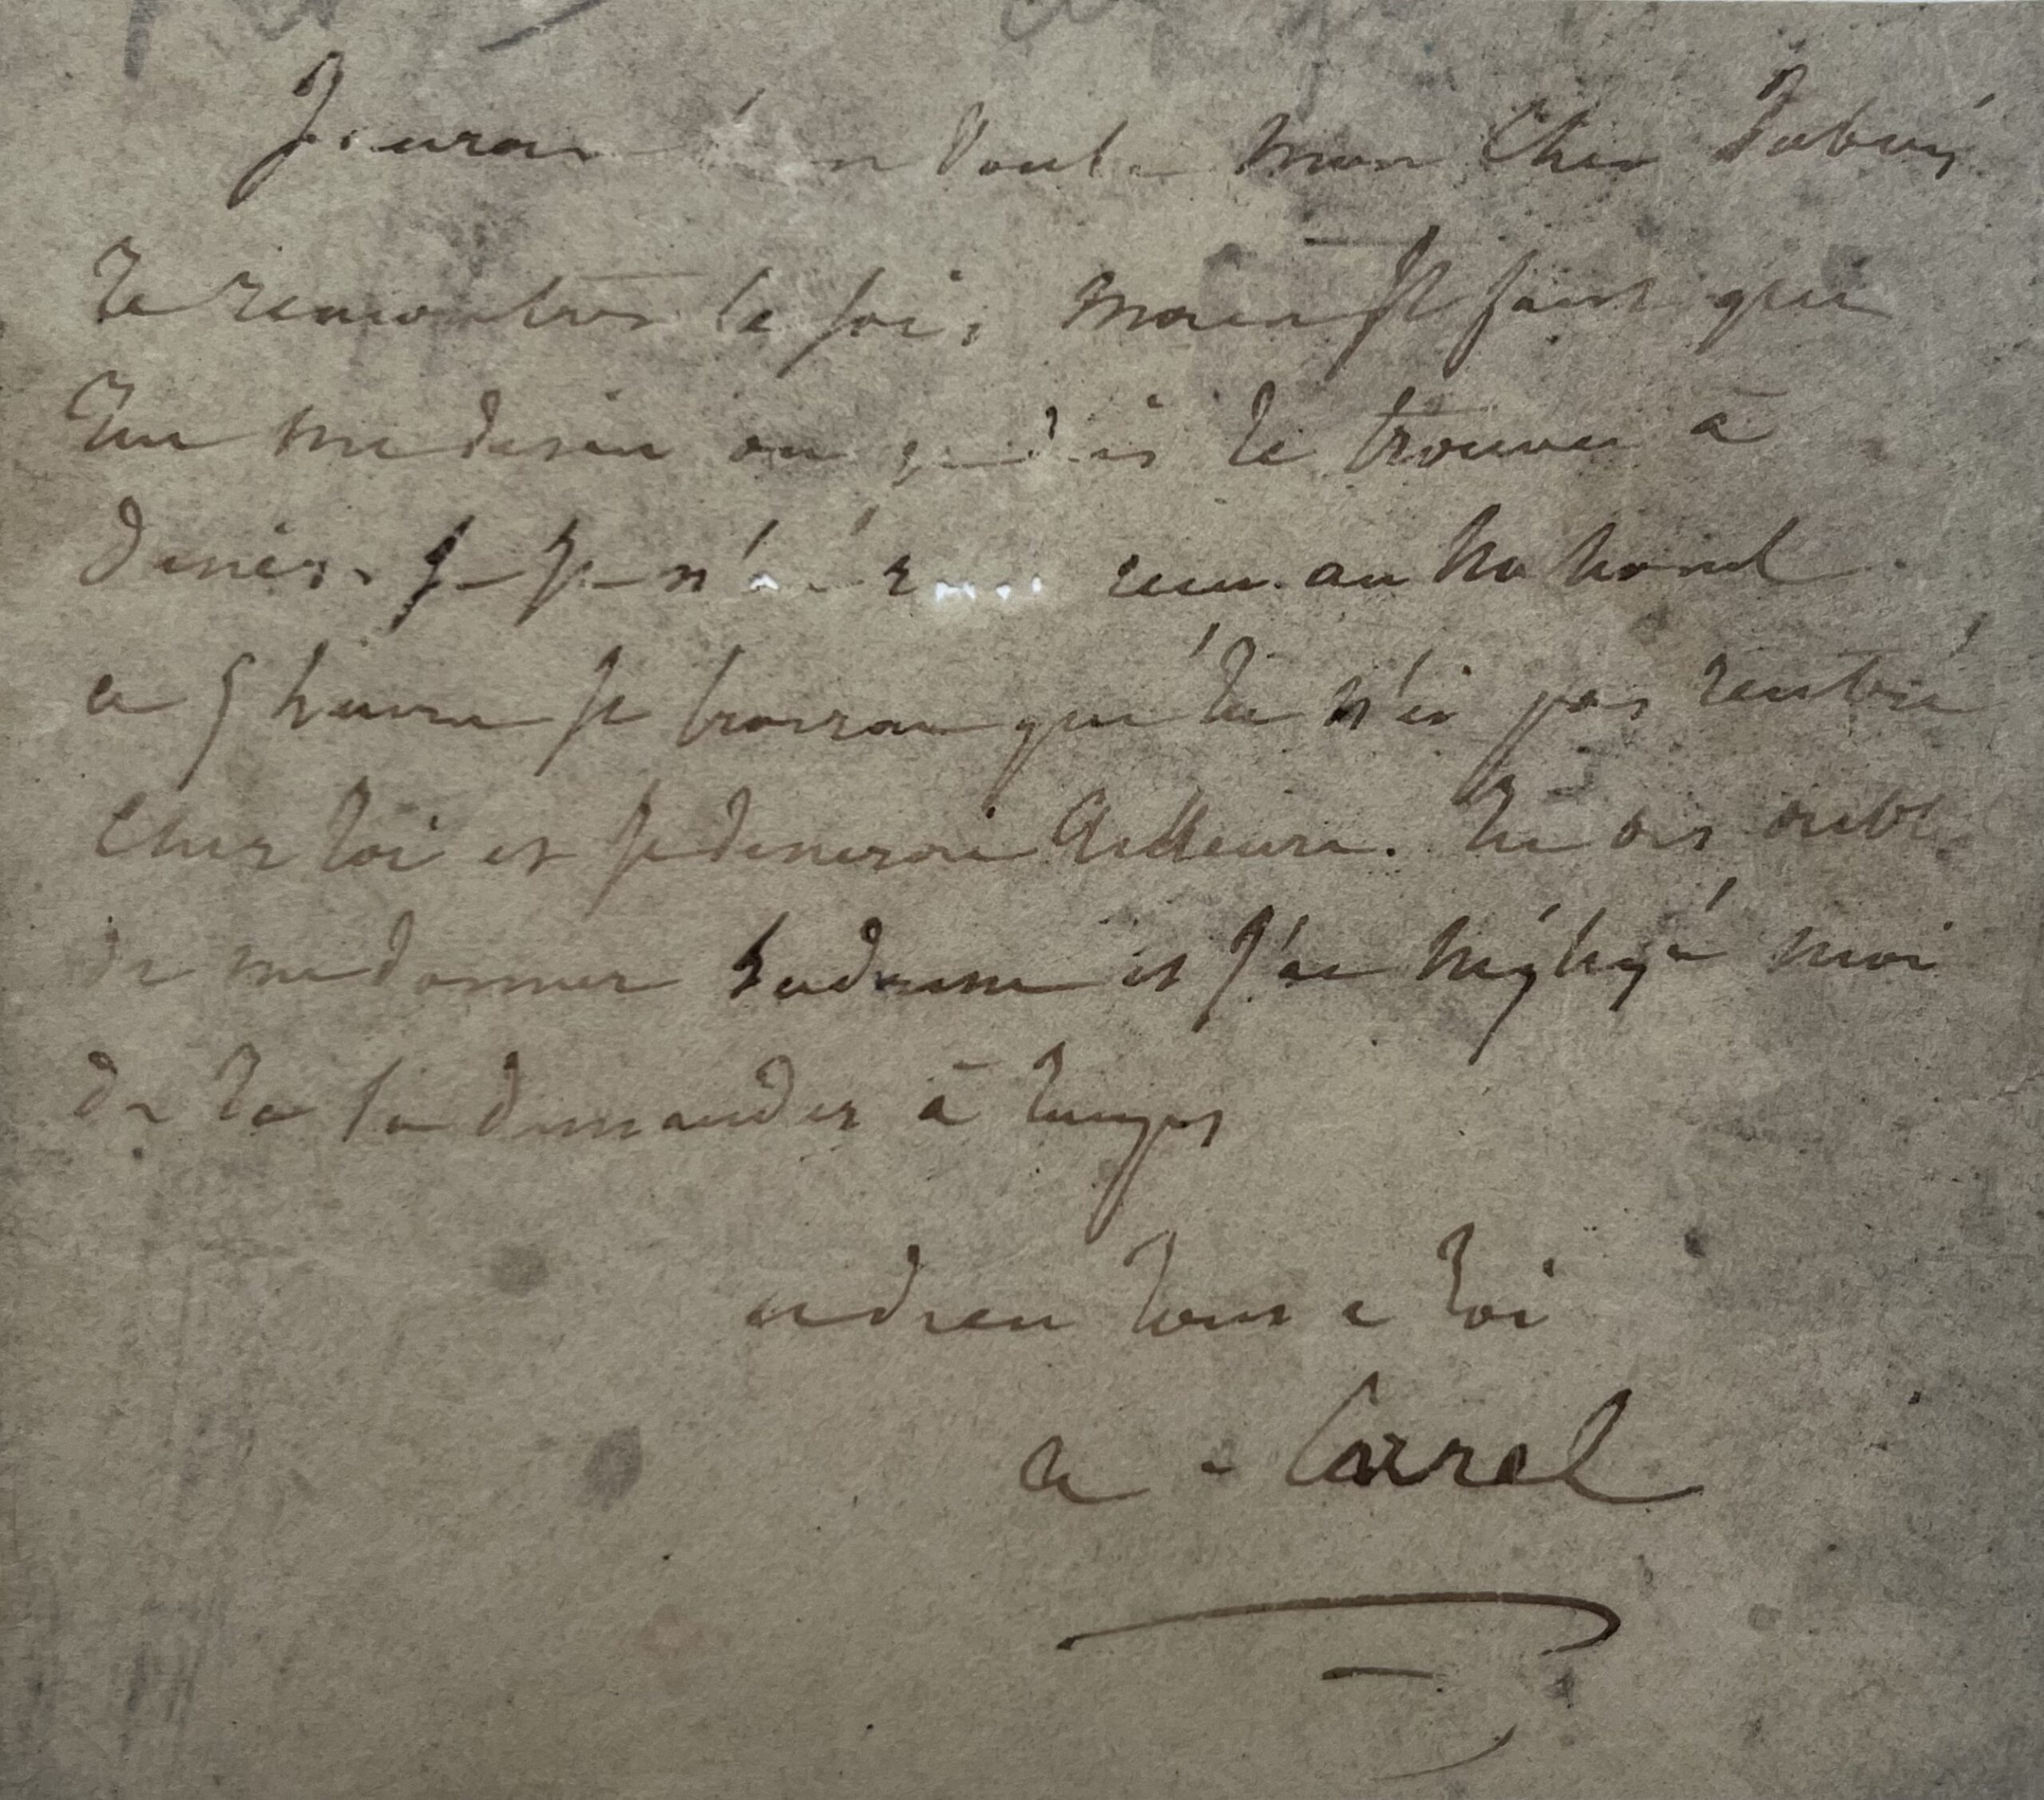 mon cher Dubois
te rencontrer le soir, mais il faut que
tu me dises ou je dois te trouver à
diner. Si je n'ai rien au National
a 5 heures je croirai que tu n'es pas rentré
chez toi et je dinerai ailleurs. Tu as oublié
de me donner ton adresse et j'ai négligé moi
de te la demander à temps
adieu tout a toi
a. Carrel